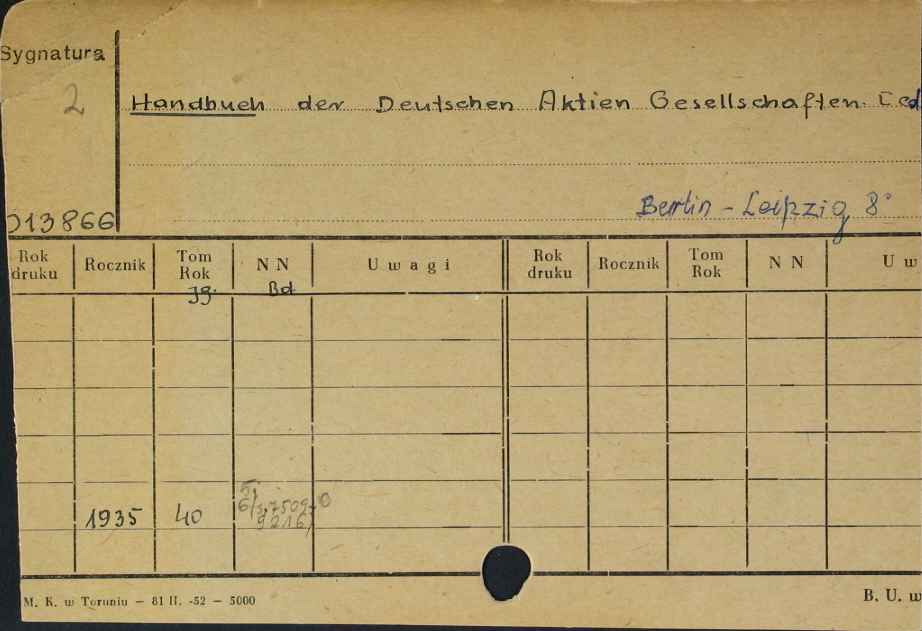 Sygnatura
2
Handbuch der Deutschen Aktien Gesellschaften.
Berlin - Leipzig 8°
013866
Rok druku Rocznik Tom Rok NN Uwagi Rok druku Rocznik Tom Rok NN Uw
Jg. Bd
5,
1935 40
M. K. w Toruniu — 81 II. -52 — 5000 B. U. w